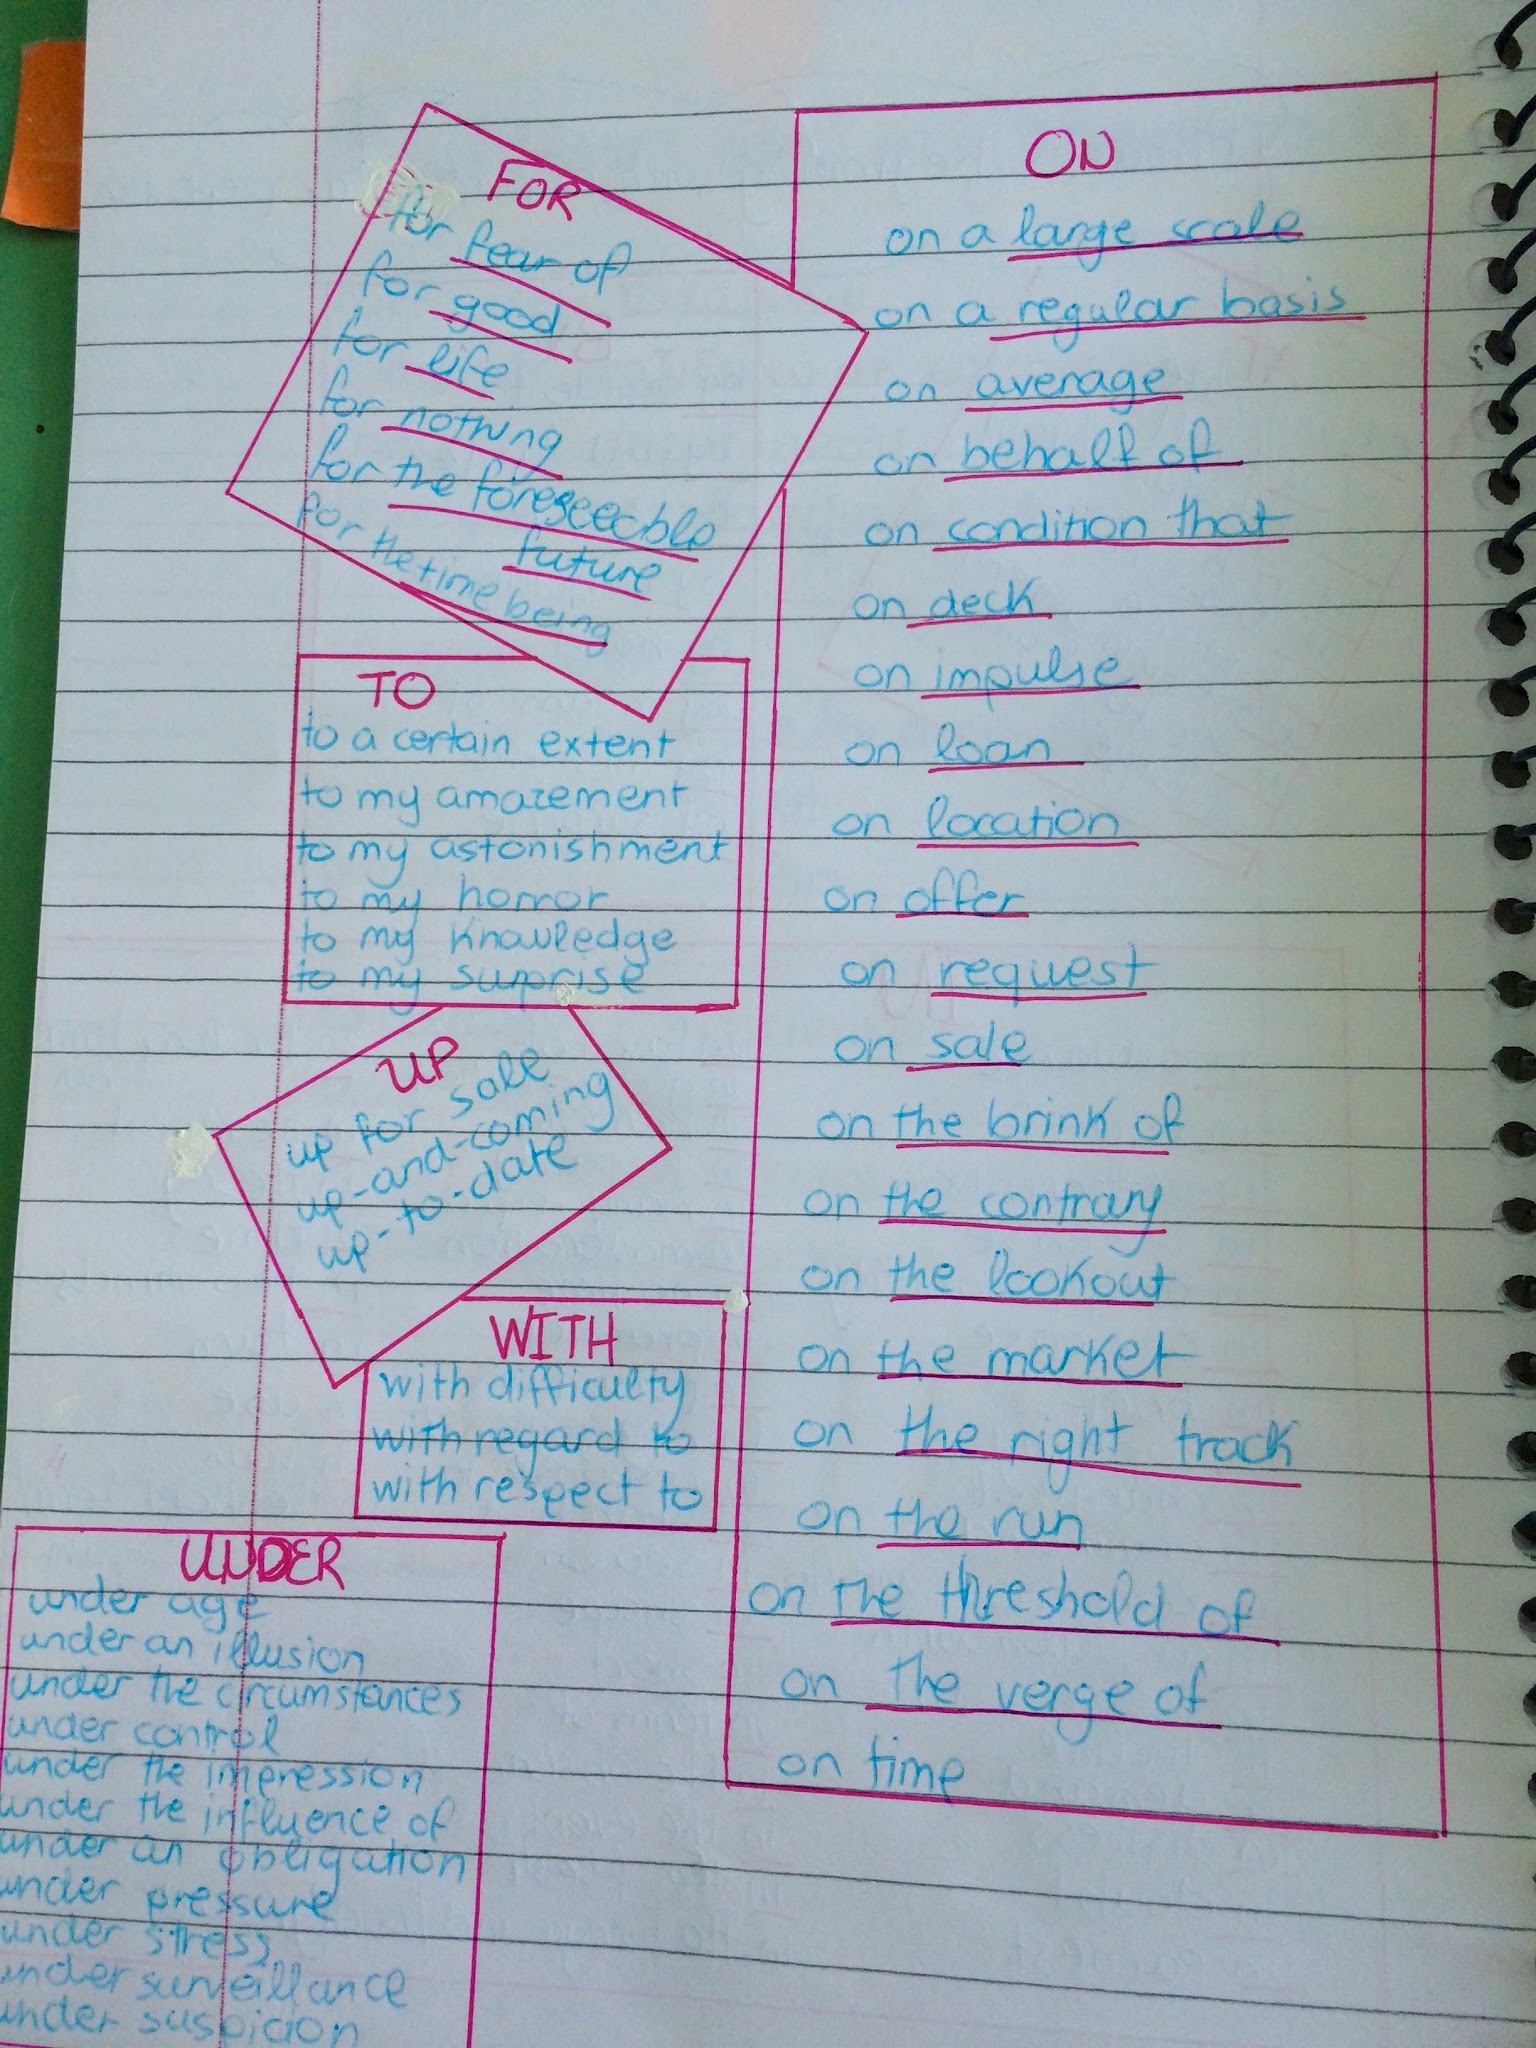 FOR
for fear of
for good
for life
for nothing
for the foreseecble
future
for the time being
TO
to a certain extent
to my amazement
to my astonishment
to my horror
to my knowledge
to my surprise
UP
up for sale
up-and-coming
up-to-date
WITH
with difficulty
with regard to
with respect to
UNDER
under age
under an illusion
under the circumstances
under control
under the impression
under the influence of
under an obligation
under pressure
under stress
under surveillance
under suspicion
ON
on a large scale
on a regular basis
on average
on behalf of
on condition that
on deck
on impulse
on loan
on location
on offer
on request
on sale
on the brink of
on the contrary
on the lookout
on the market
on the right track
on the run
on the threshold of
on the verge of
on time